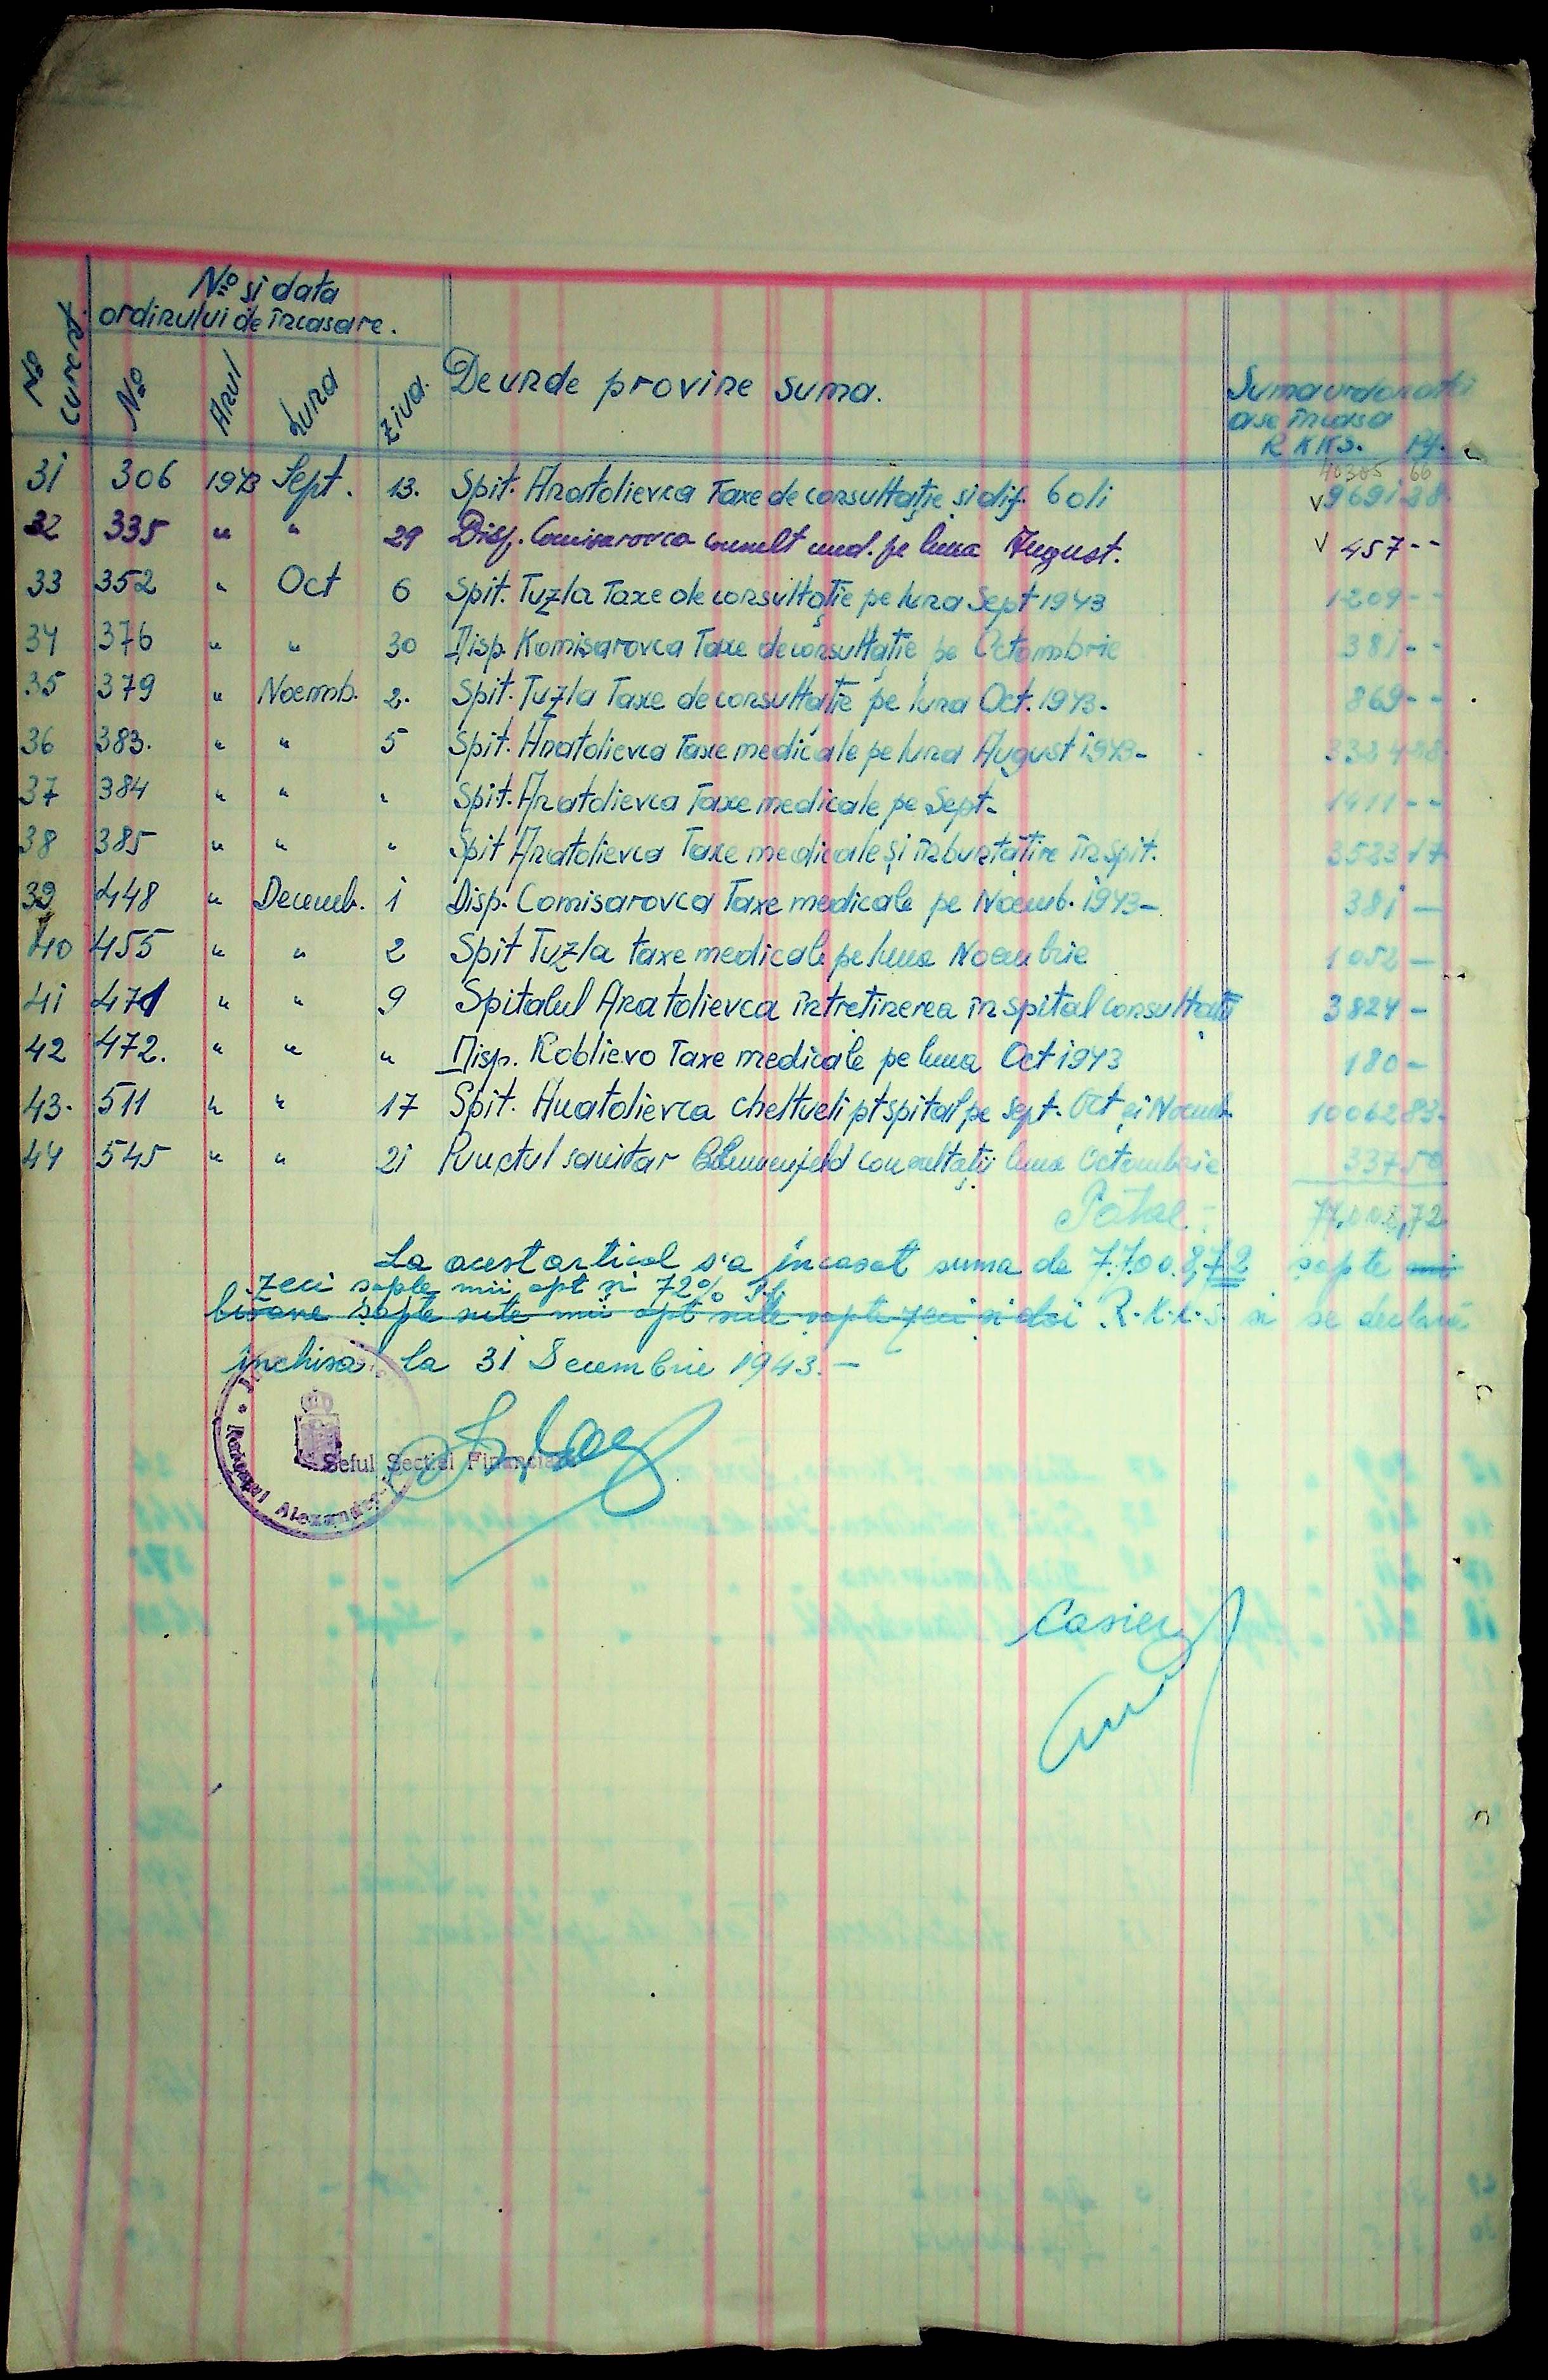 No și data
ordinului de încasare.
No curent. No Anul Luna Ziua. De unde provine suma. Suma
a se încasa
RKKS. Pf.
40305 66
31 306 1943 Sept. 13. Spit. Anatolievca Taxe de consultație și dif. boli 9691 28
32 335 " " 29 Disp. Comisarovca consult med. pe luna August. 457 - -
33 352 " Oct 6 Spit. Tuzla Taxe de consultație pe luna Sept 1943 1209 - -
34 376 " " 30 Disp. Komisarovca Taxe de consultație pe Octombrie 381 - -
35 379 " Noemb. 2. Spit. Tuzla Taxe de consultație pe luna Oct. 1943. 869 - -
36 383. " " 5 Spit. Anatolievca Taxe medicale pe luna August 1943-
37 384 " " " Spit. Anatolievca Taxe medicale pe Sept. 1411 - -
38 385 " " " Spit Anatolievca Taxe medicale și în spit. 3523 17
39 448 " Decemb. 1 Disp. Comisarovca Taxe medicale pe Noemb. 1943- 381 -
40 455 " " 2 Spit Tuzla taxe medicale pe luna Noembrie 1052 -
41 471 " " 9 Spitalul Anatolievca întretinerea în spital consultatii 3824 -
42 472. " " " Disp. Koblievo Taxe medicale pe luna Oct 1943 180 -
43. 511 " " 17 Spit. Anatolievca cheltueli pt spital pe Sept. Oct și Noemb. 10062 83
44 545 " " 21 Punctul sanitar Blumenfeld consultații luna Octombrie 337 50
Total: 77.008,72
La acest articol s'a încasat suma de 77.008,72 șapte
zeci șapte mii opt și 72% Pf.
șapte sute mii opt sute șapte zeci și doi R.K.K.S. și se declară
închisa la 31 Decembrie 1943.-
Șeful Secției Financiare
Alexandr
Casier